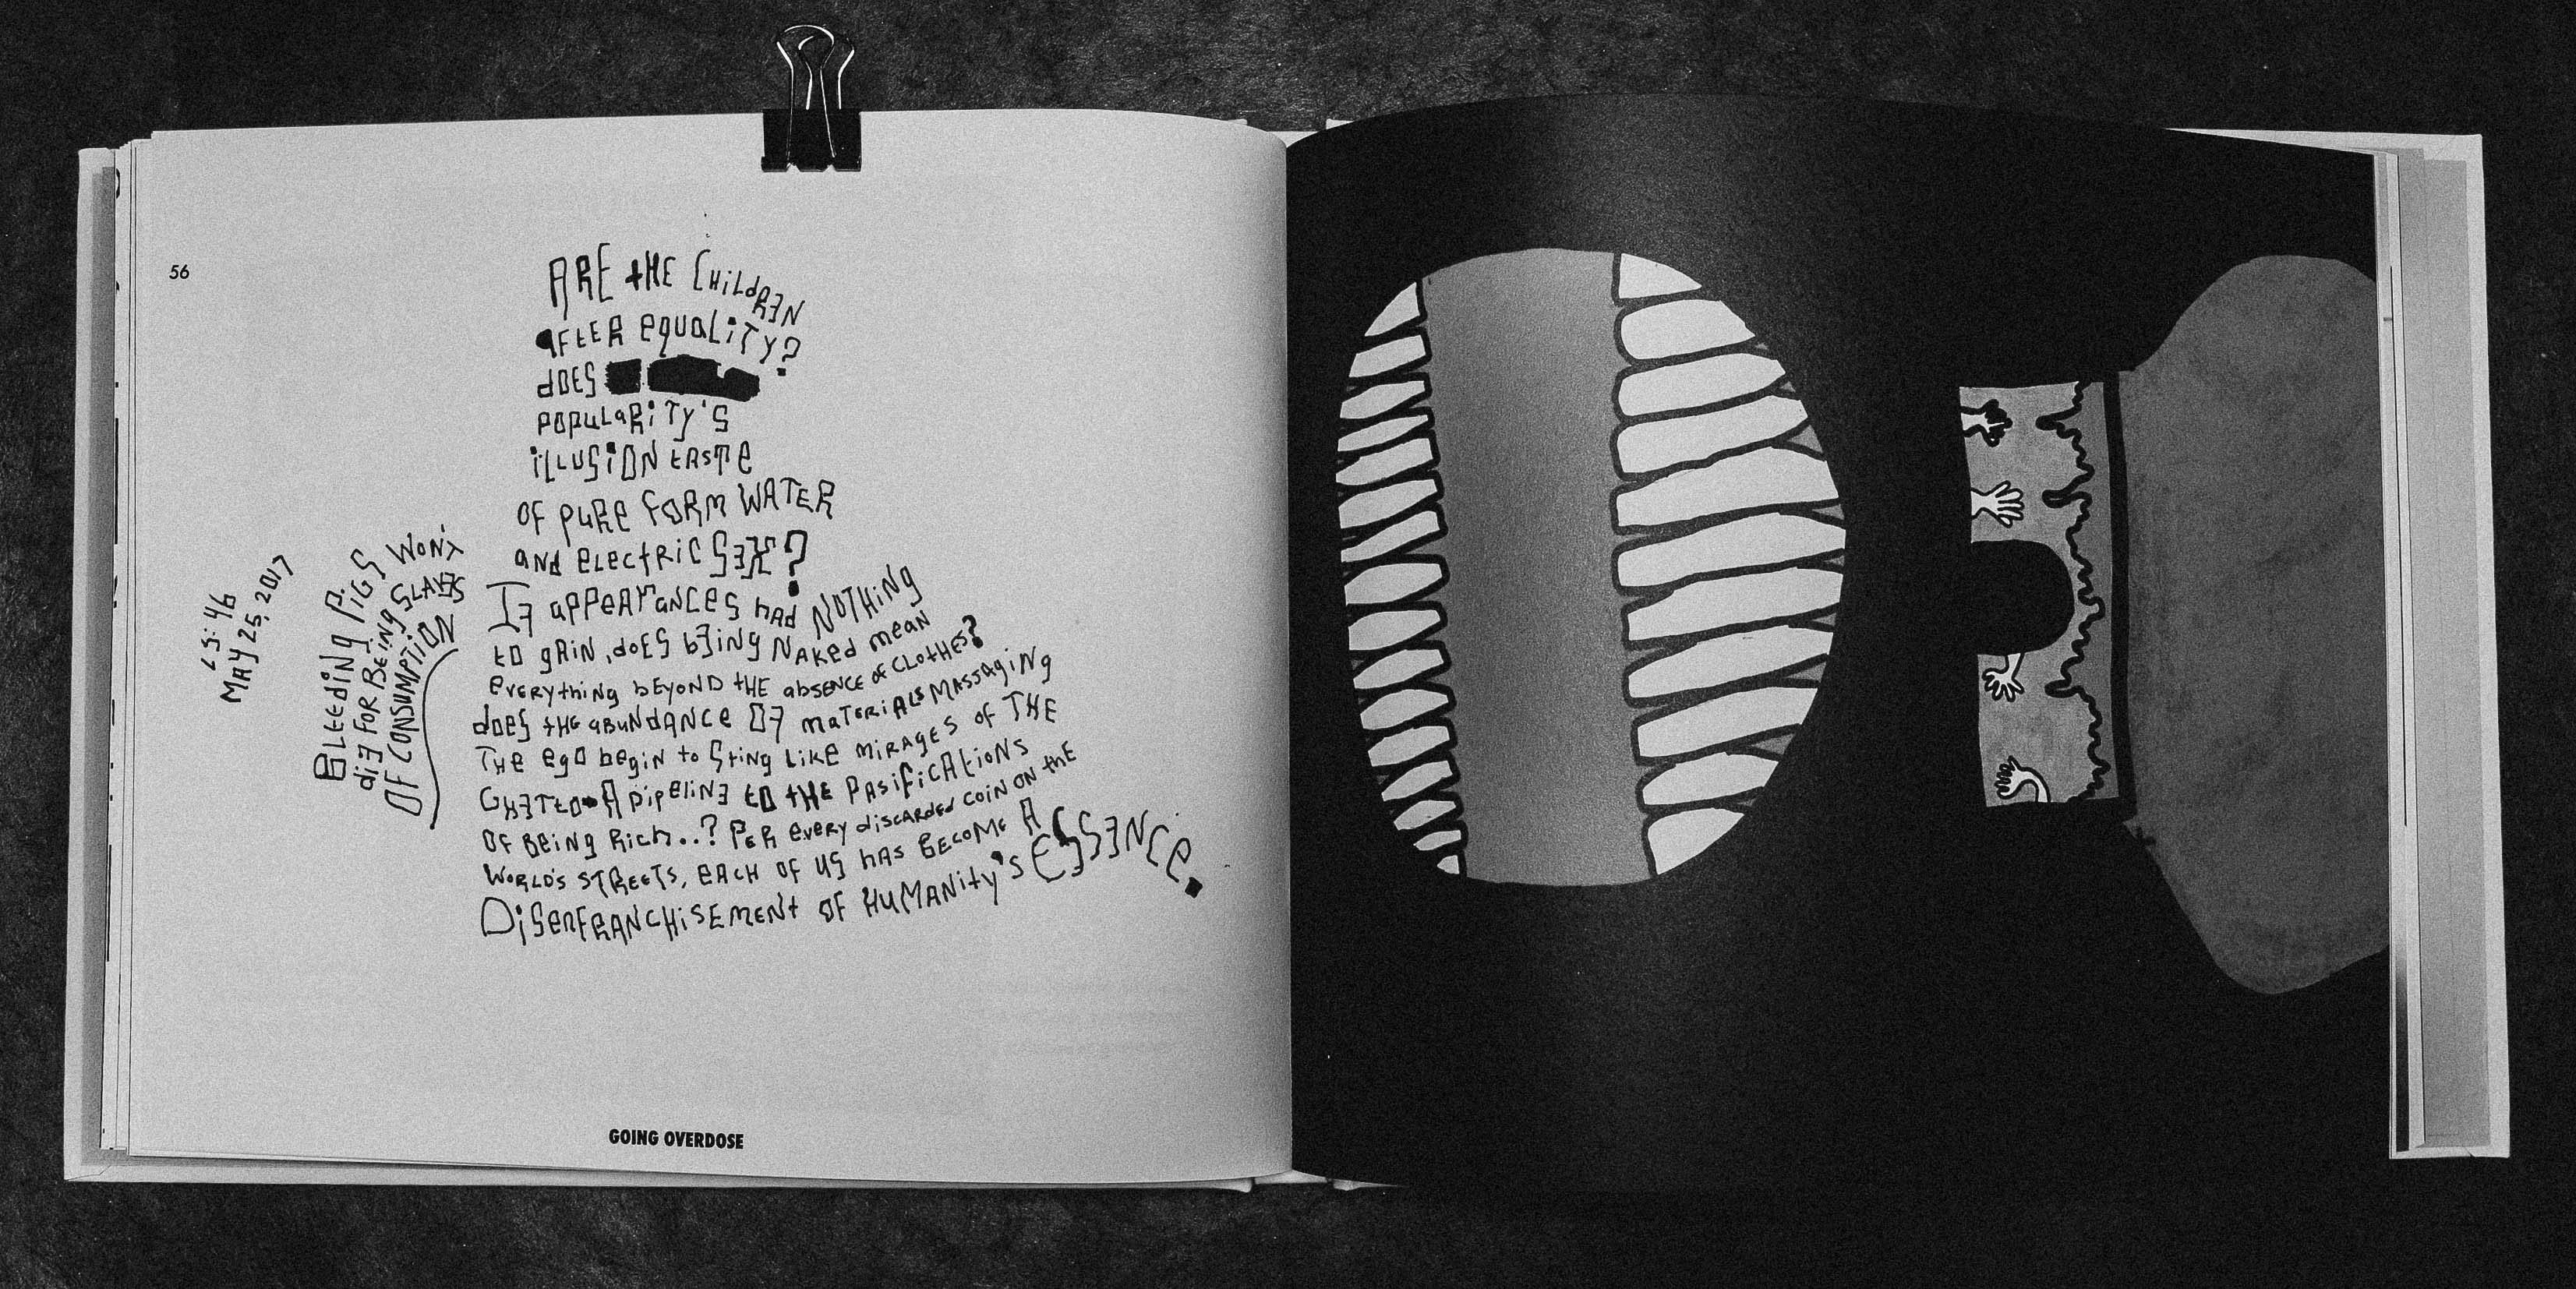 56
ARE tHE CHiLdREN
AFtER equaLiTy?
dOES
POPULaRiTy's
iLLUSiON tASTe
OF PuRe FORM WATER
and eLectRiC SEX?
If aPPeArancES haD NOTHiNg
to gAiN, doES bEing NAKed meaN
eveRythiNg bEYOND tHE absENCE oF CLotHES?
dOES tHe abuNdANCe Of maTeRiALs MASSagiNg
THe egO begiN to Sting LiKE MiRAgES oF THE
GHETtO A PiPeLiNE tO tHE PASiFiCAtioNS
OF BeiNg RicH..? PER eveRy diScARded COiN ON thE
WORLD'S STReeTS, EACH OF US HAS BECoME A
DiSenFRANCHiSEMENt OF HUMANity's ESSENCe.
BLeediNg PiGS WON't
diE FOR BEiNg SLAVES
OF CONSUMPTiON
:46
MAy 25, 2017
GOING OVERDOSE